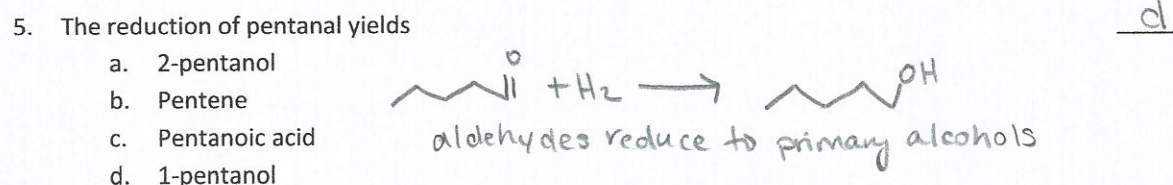 5. The reduction of pentanal yields d
a. 2-pentanol
b. Pentene
c. Pentanoic acid
d. 1-pentanol
O
+ H2 → OH
aldehydes reduce to primary alcohols